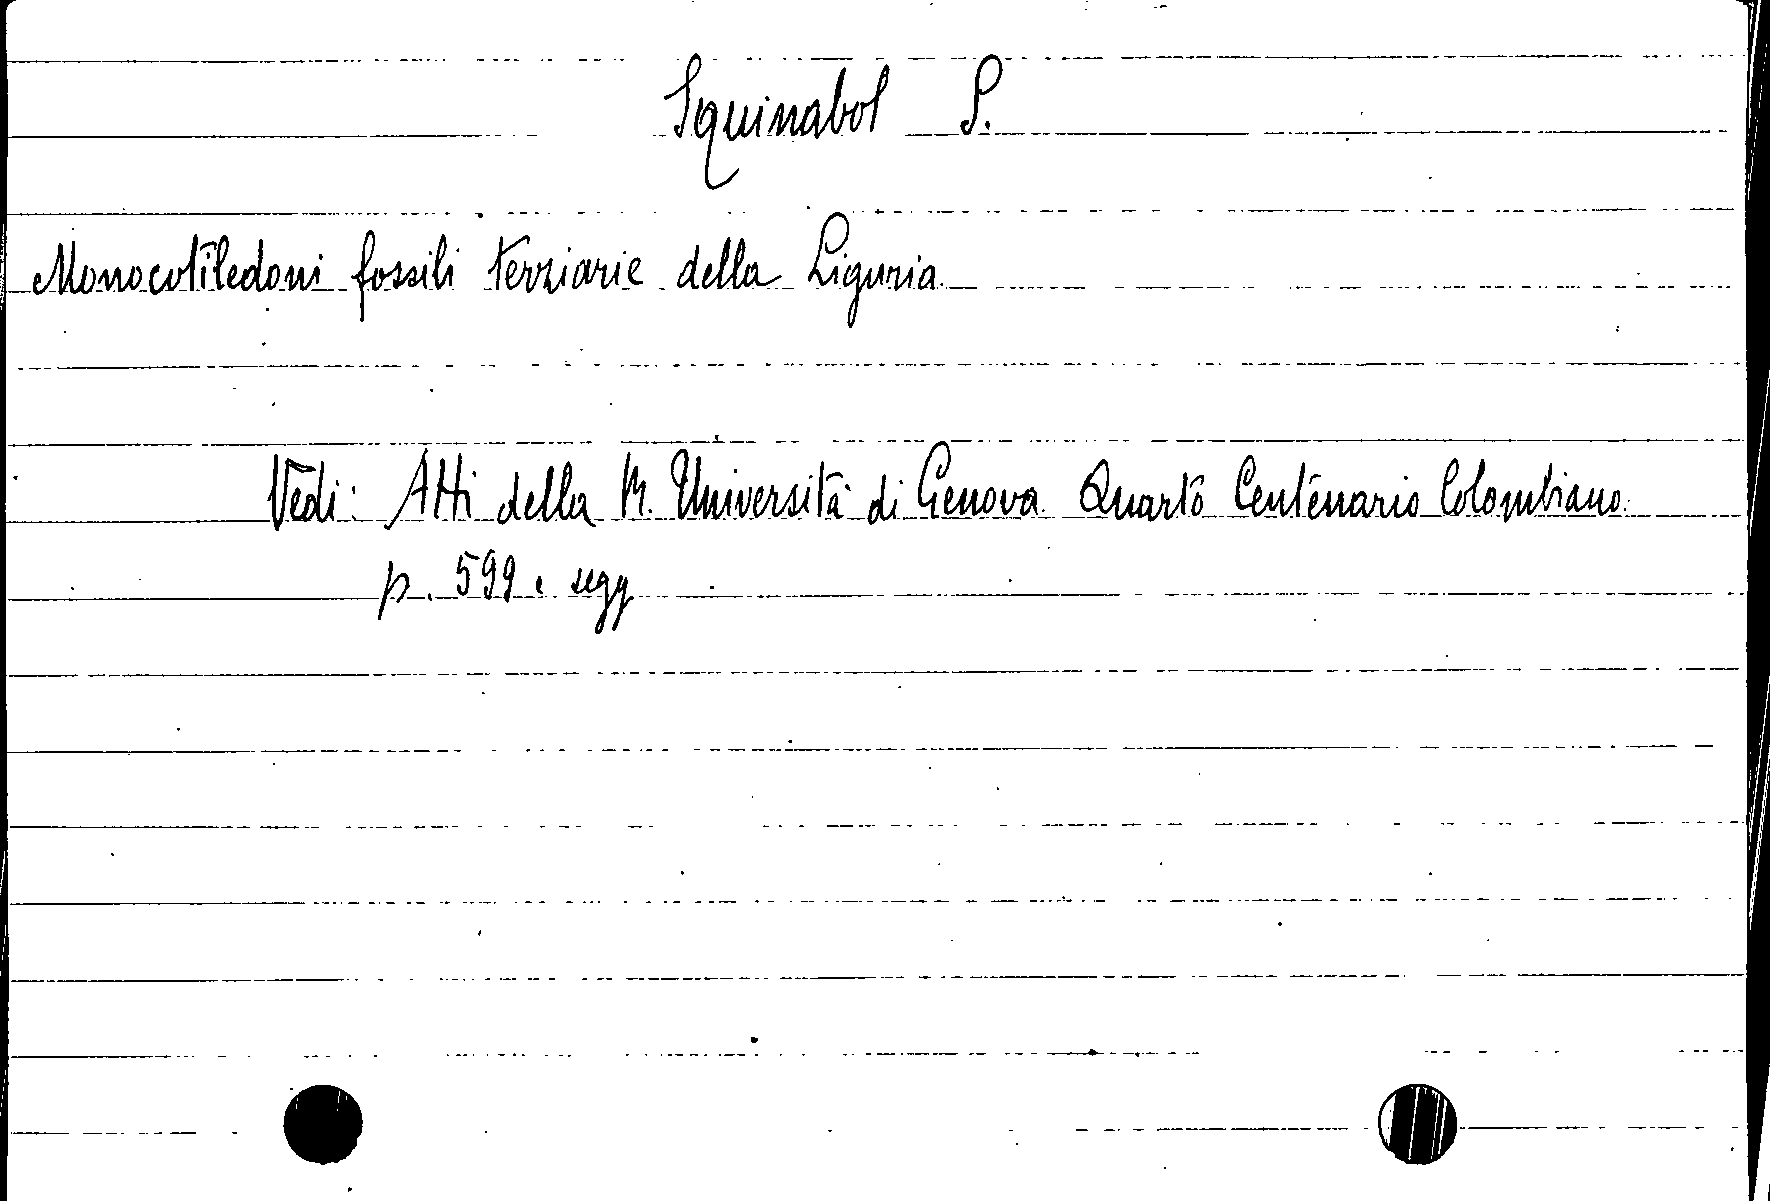 Squinabol S.
Monocotiledoni fossili terziarie della Liguria.
Vedi: Atti della R. Università di Genova. Quarto Centenario Colombiano.
p. 599 e segg